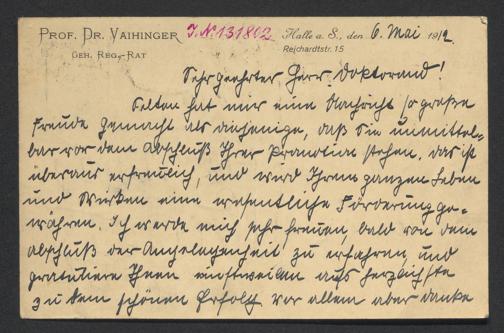 PROF. DR. VAIHINGER
GEH. REG.-RAT
I.N. 131802
Halle a. S., den 6. Mai 1912.
Reichardtstr. 15
Sehr geehrter Herr Doktorand!
Selten hat mir eine Nachricht so große
Freude gemacht als diejenige, daß Sie unmittel-
bar vor dem Abschluß Ihrer Promotion stehen, das ist
überaus erfreulich, und wird Ihrem ganzen Leben
und Wirken eine wesentliche Förderung ge-
währen. Ich werde mich sehr freuen, bald von dem
Abschluß der Angelegenheit zu erfahren, und
gratuliere Ihnen einstweilen aufs herzlichste
zu dem schönen Erfolg. Vor allem aber danke